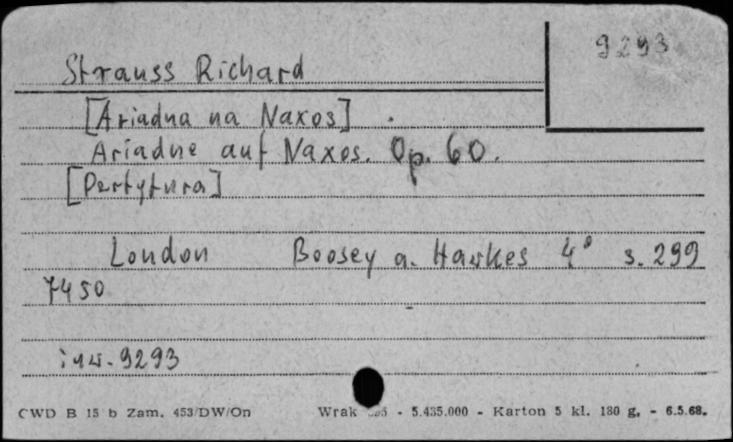 9293
Strauss Richard
[Ariadna na Naxos].
Ariadne auf Naxos. Op. 60.
[Partytura]
London Boosey a. Hawkes 4° s. 299
7450
inw. 9293
CWD B 15 b Zam. 453/DW/On Wrak - 5.435.000 - Karton 5 kl. 180 g. - 6.5.68.